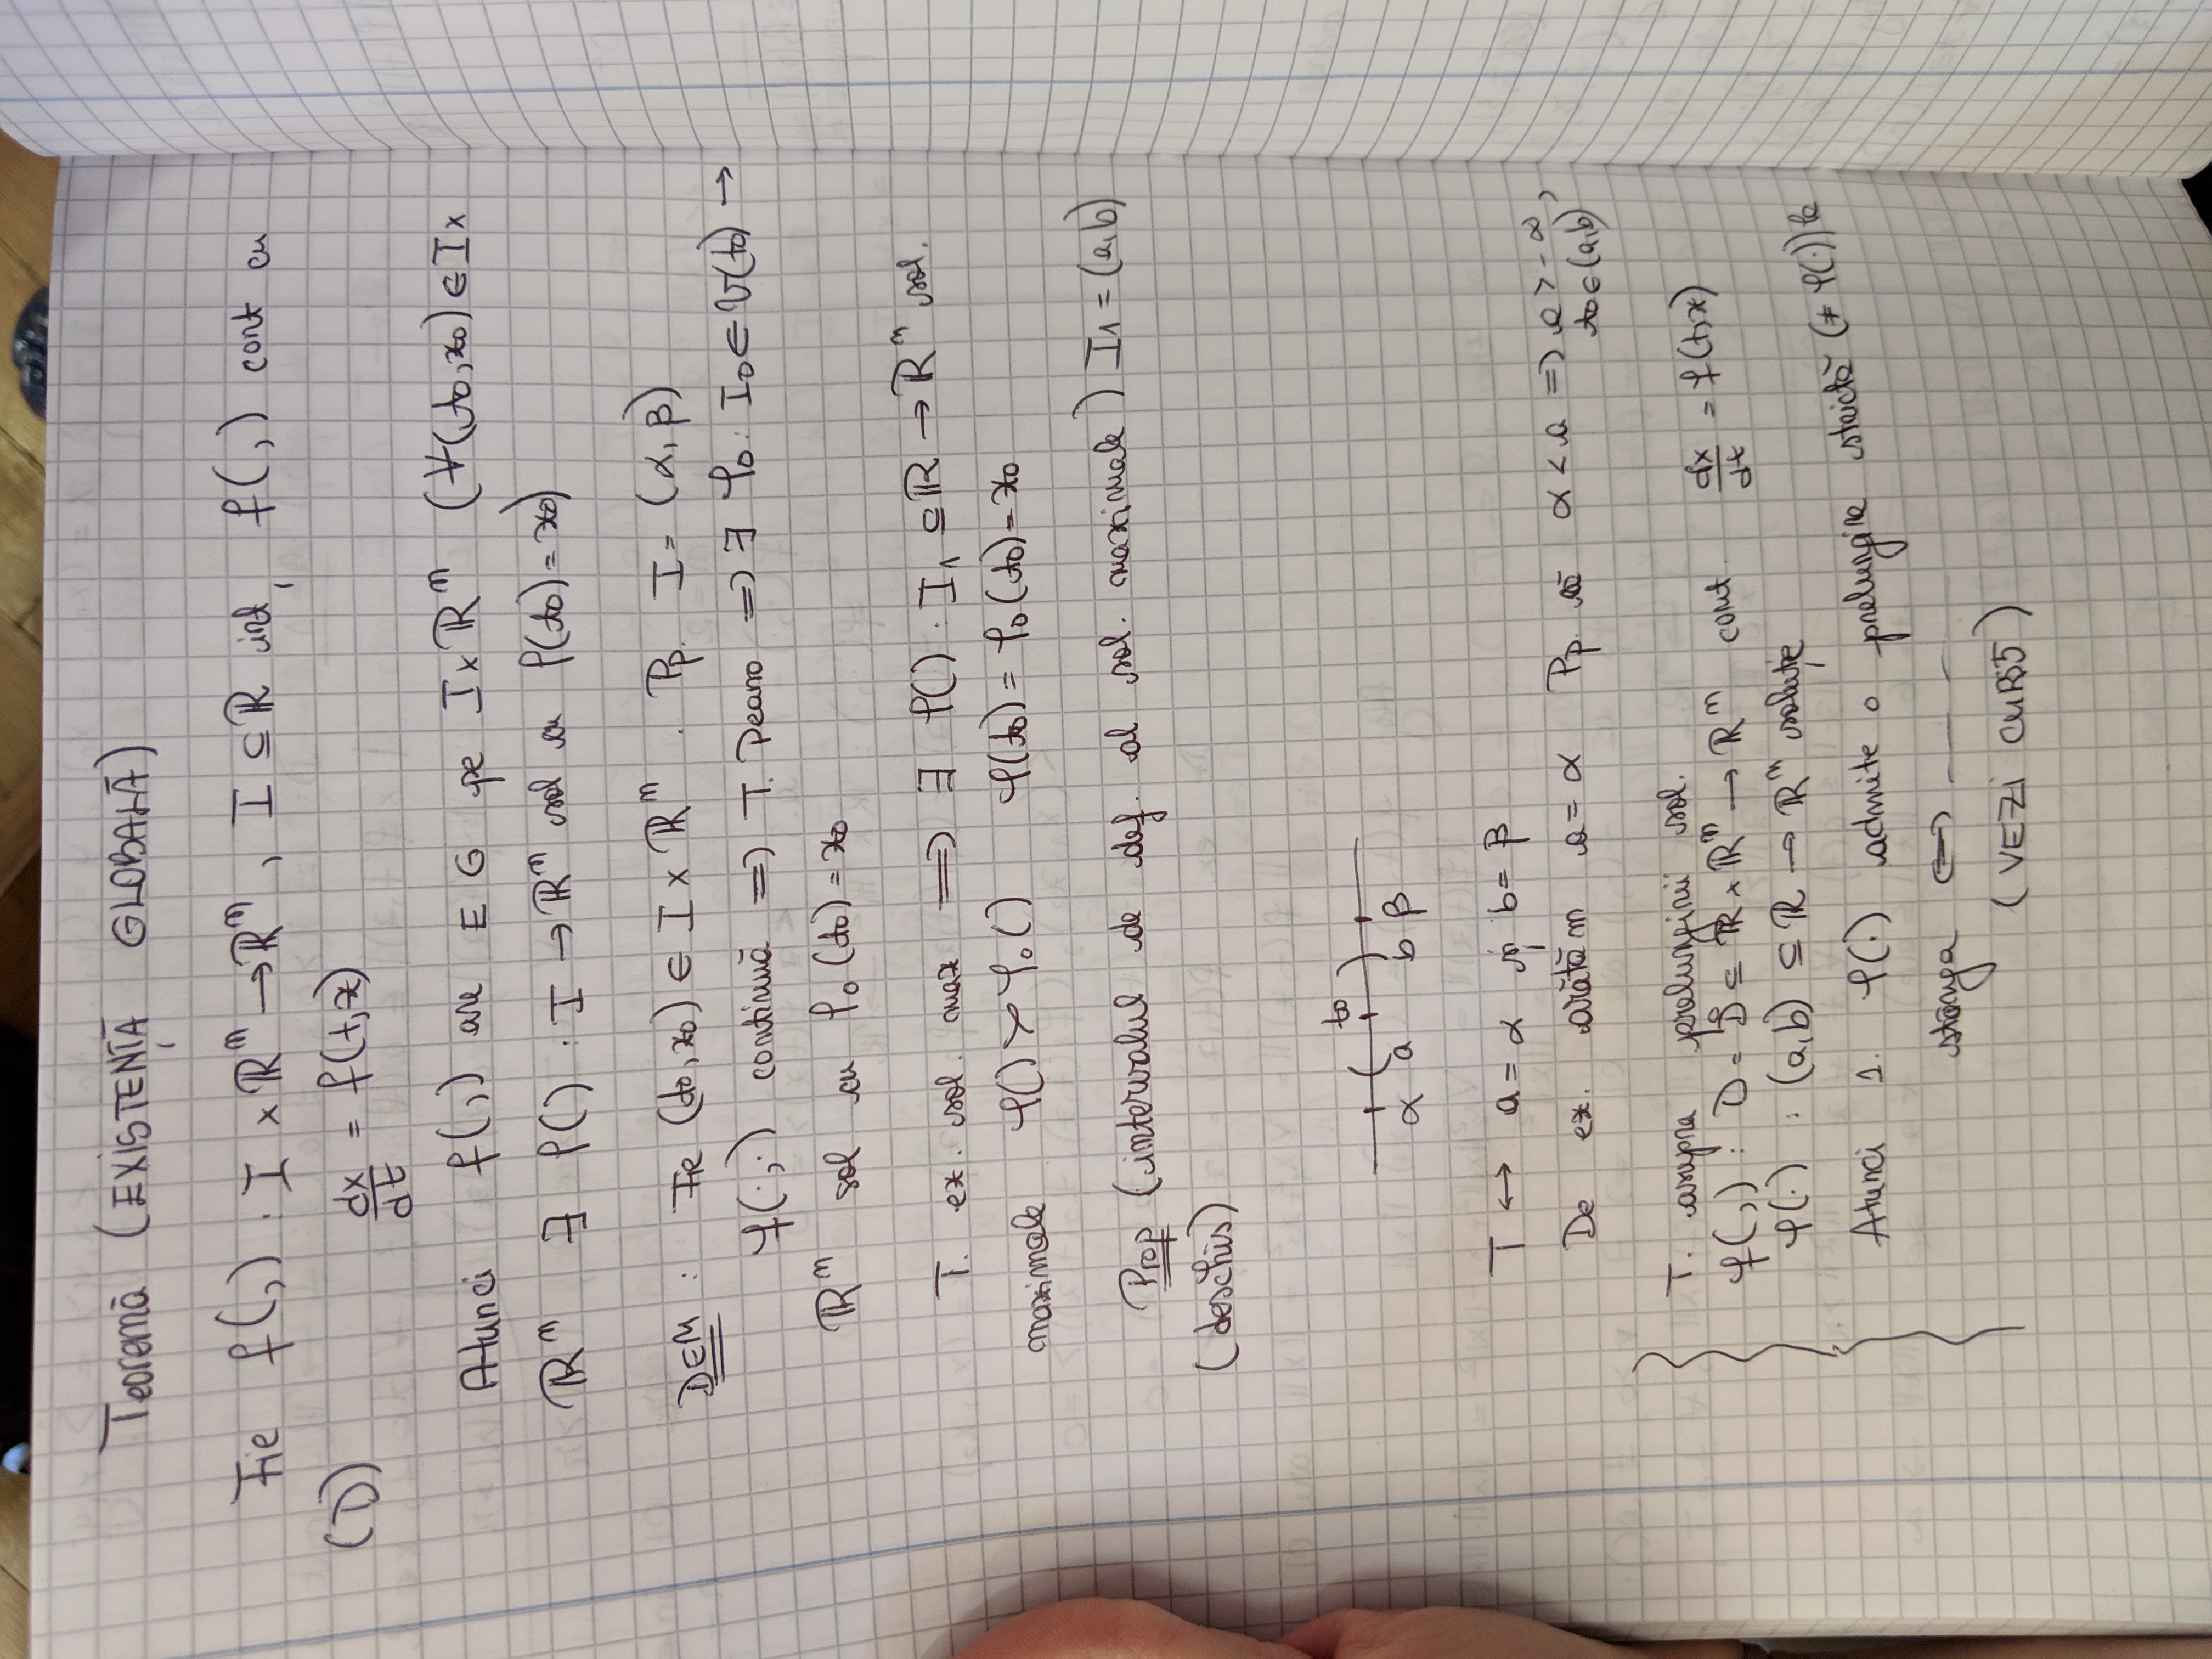 Teoremă (EXISTENȚĂ GLOBALĂ)
Fie f(,) : I × ℝⁿ → ℝⁿ, I ⊆ ℝ int, f(,) cont cu
(D) dx/dt = f(t,x)
Atunci f(,) are E G pe I × ℝⁿ (∀(t₀,x₀) ∈ I ×
ℝⁿ ∃ φ() : I → ℝⁿ sol cu φ(t₀) = x₀)
DEM : Fie (t₀,x₀) ∈ I × ℝⁿ. Pp. I = (α, β)
f(·,·) continuă ⟹ T. Peano ⟹ ∃ φ₀ : I₀ ∈ V(t₀) →
ℝⁿ sol cu φ₀(t₀) = x₀
T. ex. sol. max ⟹ ∃ φ() : I₁ ⊆ ℝ → ℝⁿ sol.
maximale φ() ≻ φ₀() φ(t₀) = φ₀(t₀) = x₀
Prop (intervalul de def. al sol. maximale) I₁ = (a,b)
(deschis)
t₀
α a b β
T ↔ a = α și b = β
De ex. arătăm a = α Pp. că α < a ⟹ a > -∞,
t₀ ∈ (a,b)
T. asupra prelungirii sol.
f(,) : D = D̊ ⊆ ℝ × ℝⁿ → ℝⁿ cont. dx/dt = f(t,x)
φ(·) : (a,b) ⊆ ℝ → ℝⁿ soluție
Atunci 1. φ(·) admite o prelungire strictă (≠ φ(·)) la
stânga ⟺ — — —
(VEZI CURS5)